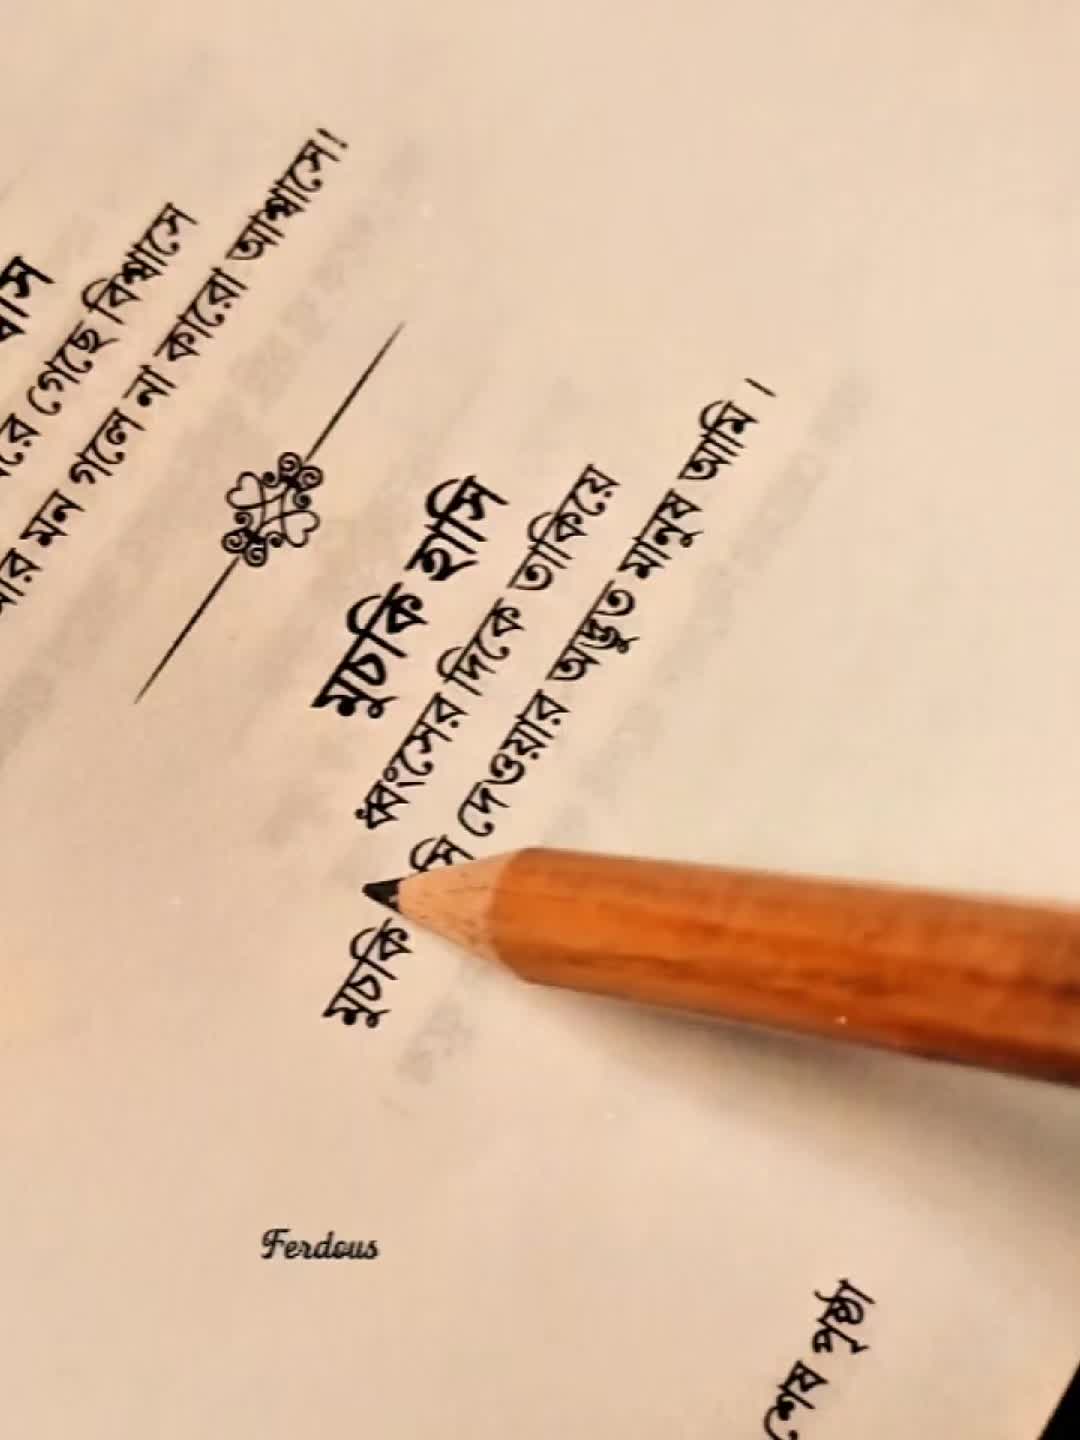 রে গেছে বিশ্বাসে
আর মন গলে না কারো আশ্বাসে!
মুচকি হাসি
ধ্বংসের দিকে তাকিয়ে
মুচকি দেওয়ার অদ্ভুত মানুষ আমি ।
Ferdous
শেষ পৃষ্ঠা